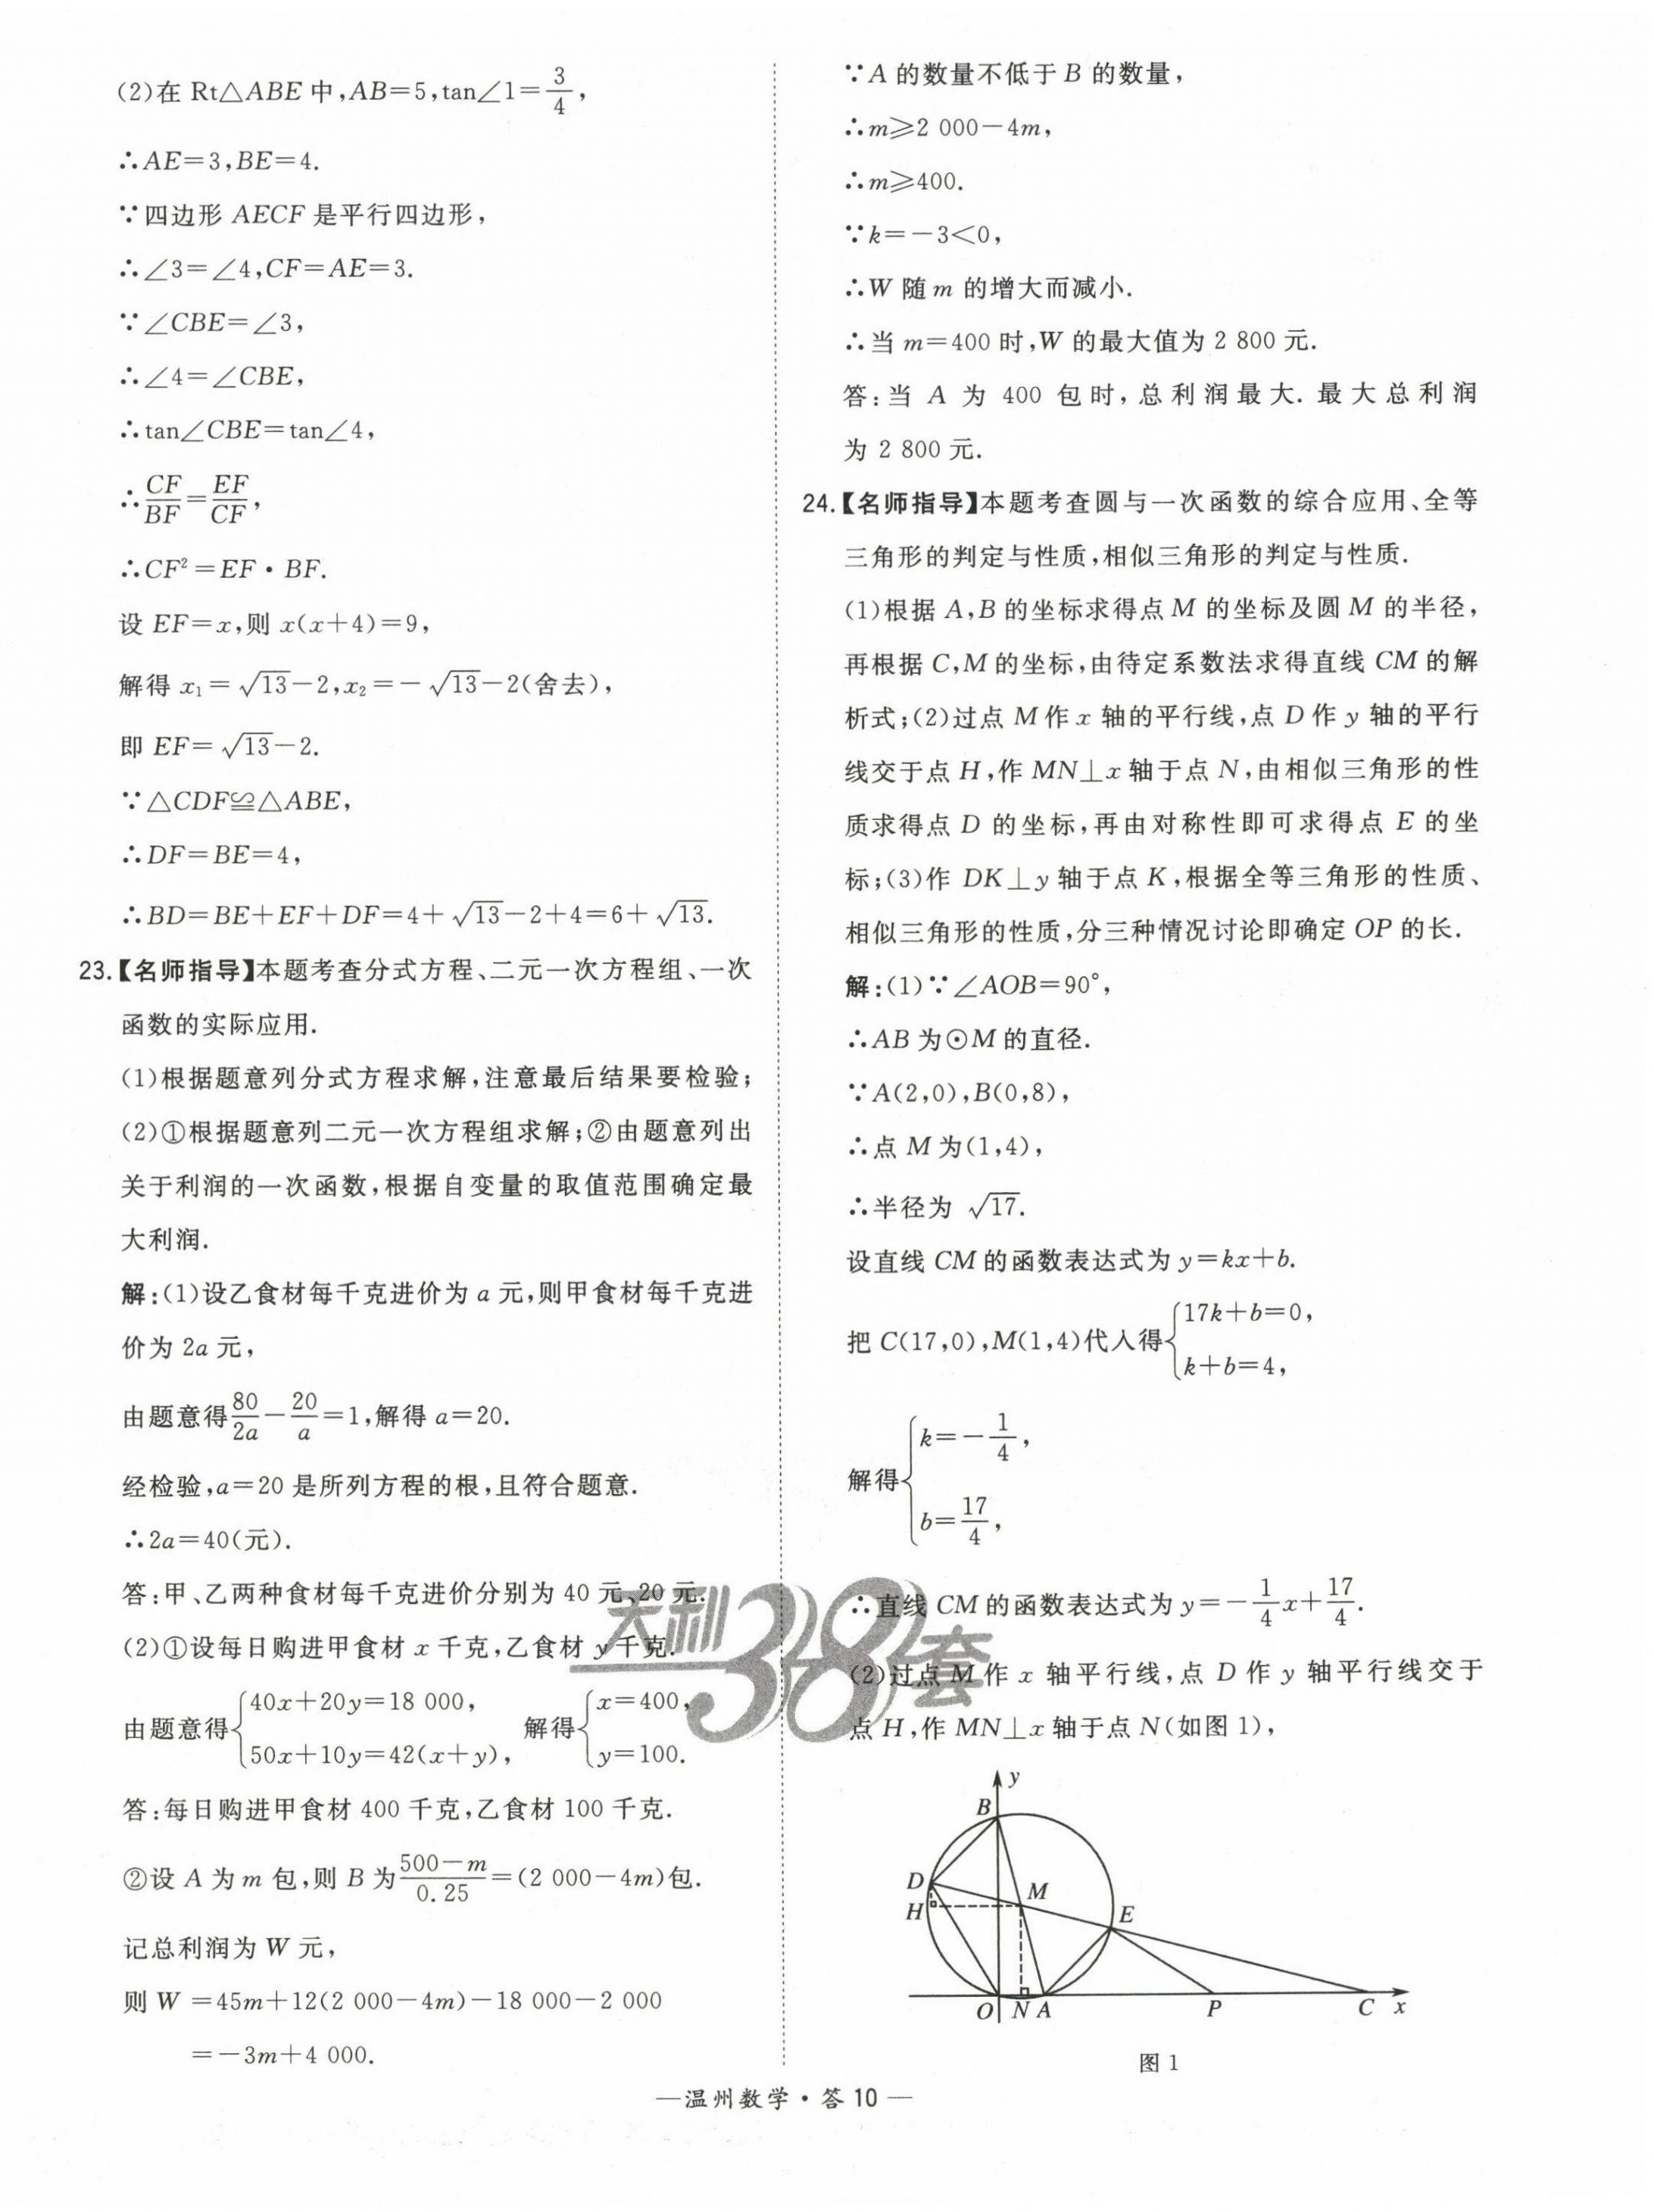 (2)在 Rt△ABE 中,AB=5,tan∠1=3/4,
∴AE=3,BE=4.
∵四边形 AECF 是平行四边形,
∴∠3=∠4,CF=AE=3.
∵∠CBE=∠3,
∴∠4=∠CBE,
∴tan∠CBE=tan∠4,
∴CF/BF=EF/CF,
∴CF²=EF·BF.
设 EF=x,则 x(x+4)=9,
解得 x₁=√13-2,x₂=-√13-2(舍去),
即 EF=√13-2.
∵△CDF≌△ABE,
∴DF=BE=4,
∴BD=BE+EF+DF=4+√13-2+4=6+√13.
23.【名师指导】本题考查分式方程、二元一次方程组、一次
函数的实际应用.
(1)根据题意列分式方程求解,注意最后结果要检验;
(2)①根据题意列二元一次方程组求解;②由题意列出
关于利润的一次函数,根据自变量的取值范围确定最
大利润.
解:(1)设乙食材每千克进价为 a 元,则甲食材每千克进
价为 2a 元,
由题意得80/2a-20/a=1,解得 a=20.
经检验,a=20 是所列方程的根,且符合题意.
∴2a=40(元).
答:甲、乙两种食材每千克进价分别为 40 元、20 元.
(2)①设每日购进甲食材 x 千克,乙食材 y 千克.
由题意得{40x+20y=18 000, 50x+10y=42(x+y), 解得{x=400, y=100.
答:每日购进甲食材 400 千克,乙食材 100 千克.
②设 A 为 m 包,则 B 为(500-m)/0.25=(2 000-4m)包.
记总利润为 W 元,
则 W =45m+12(2 000-4m)-18 000-2 000
=-3m+4 000.
∵A 的数量不低于 B 的数量,
∴m≥2 000-4m,
∴m≥400.
∵k=-3<0,
∴W 随 m 的增大而减小.
∴当 m=400 时,W 的最大值为 2 800 元.
答:当 A 为 400 包时,总利润最大.最大总利润
为 2 800 元.
24.【名师指导】本题考查圆与一次函数的综合应用、全等
三角形的判定与性质,相似三角形的判定与性质.
(1)根据 A,B 的坐标求得点 M 的坐标及圆 M 的半径,
再根据 C,M 的坐标,由待定系数法求得直线 CM 的解
析式;(2)过点 M 作 x 轴的平行线,点 D 作 y 轴的平行
线交于点 H,作 MN⊥x 轴于点 N,由相似三角形的性
质求得点 D 的坐标,再由对称性即可求得点 E 的坐
标;(3)作 DK⊥y 轴于点 K,根据全等三角形的性质、
相似三角形的性质,分三种情况讨论即确定 OP 的长.
解:(1)∵∠AOB=90°,
∴AB 为⊙M 的直径.
∵A(2,0),B(0,8),
∴点 M 为(1,4),
∴半径为 √17.
设直线 CM 的函数表达式为 y=kx+b.
把 C(17,0),M(1,4)代入得{17k+b=0, k+b=4,
解得{k=-1/4, b=17/4,
∴直线 CM 的函数表达式为 y=-1/4x+17/4.
(2)过点 M 作 x 轴平行线,点 D 作 y 轴平行线交于
点 H,作 MN⊥x 轴于点 N(如图 1),
y
B
D
M
H
E
O N A P C x
图 1
天利38套
—温州数学·答 10 —